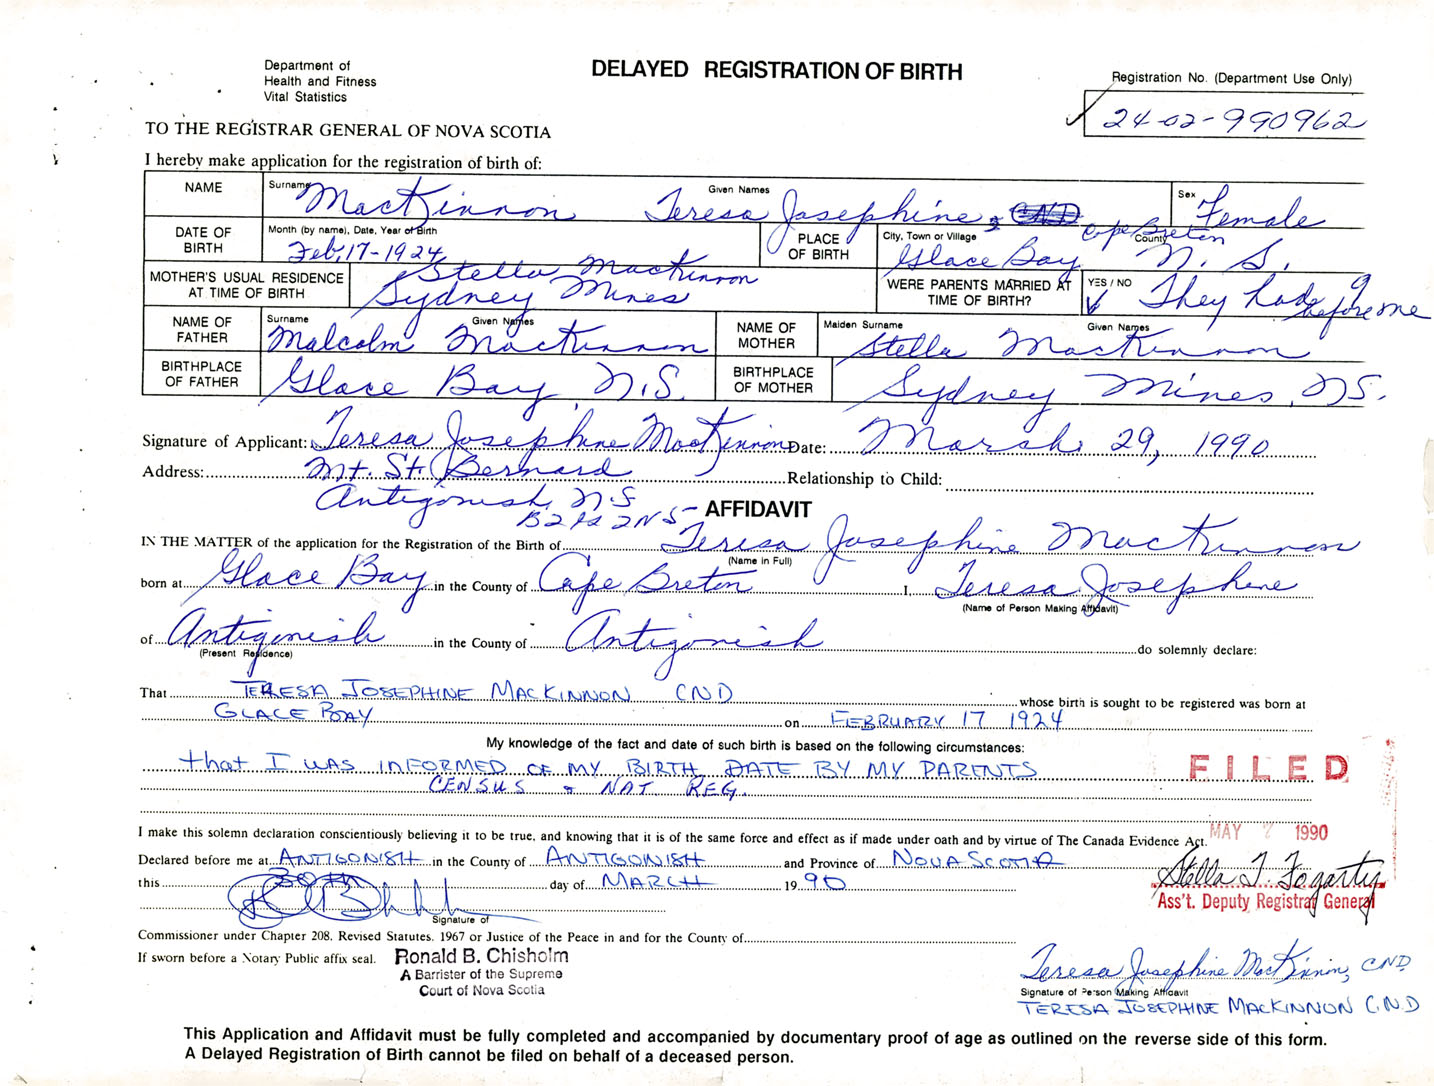 Department of
Health and Fitness
Vital Statistics
DELAYED REGISTRATION OF BIRTH
Registration No. (Department Use Only)
24-02-990962
TO THE REGISTRAR GENERAL OF NOVA SCOTIA
I hereby make application for the registration of birth of:
NAME Surname MacKinnon Given Names Teresa Josephine, CND Sex Female
DATE OF BIRTH Month (by name), Date, Year of Birth Feb, 17-1924 PLACE OF BIRTH City, Town or Village Glace Bay County Cape Breton N. S.
MOTHER'S USUAL RESIDENCE AT TIME OF BIRTH Stella MacKinnon Sydney Mines WERE PARENTS MARRIED AT TIME OF BIRTH? YES / NO They had before me
NAME OF FATHER Surname Given Names Malcolm MacKinnon NAME OF MOTHER Maiden Surname Given Names Stella MacKinnon
BIRTHPLACE OF FATHER Glace Bay, N.S. BIRTHPLACE OF MOTHER Sydney Mines, NS.
Signature of Applicant: Teresa Josephine MacKinnon Date: March 29, 1990
Address: Mt. St. Bernard Relationship to Child:
Antigonish, N.S
AFFIDAVIT
IN THE MATTER of the application for the Registration of the Birth of Teresa Josephine MacKinnon
(Name in Full)
born at Glace Bay in the County of Cape Breton I, Teresa Josephine
(Name of Person Making Affidavit)
of Antigonish in the County of Antigonish do solemnly declare:
(Present Residence)
That TERESA JOSEPHINE MACKINNON CND whose birth is sought to be registered was born at
GLACE BAY on FEBRUARY 17 1924
My knowledge of the fact and date of such birth is based on the following circumstances:
that I WAS INFORMED OF MY BIRTH DATE BY MY PARENTS
CENSUS + NAT REG.
FILED
MAY 2 1990
I make this solemn declaration conscientiously believing it to be true, and knowing that it is of the same force and effect as if made under oath and by virtue of The Canada Evidence Act.
Declared before me at ANTIGONISH in the County of ANTIGONISH and Province of NOVA SCOTIA
this 30TH day of MARCH 19 90
Stella T. Fogarty
Ass't. Deputy Registrar General
Signature of
Commissioner under Chapter 208, Revised Statutes, 1967 or Justice of the Peace in and for the County of
If sworn before a Notary Public affix seal.
Ronald B. Chisholm
A Barrister of the Supreme
Court of Nova Scotia
Teresa Josephine MacKinnon, CND
Signature of Person Making Affidavit
TERESA JOSEPHINE MACKINNON C.N.D
This Application and Affidavit must be fully completed and accompanied by documentary proof of age as outlined on the reverse side of this form.
A Delayed Registration of Birth cannot be filed on behalf of a deceased person.